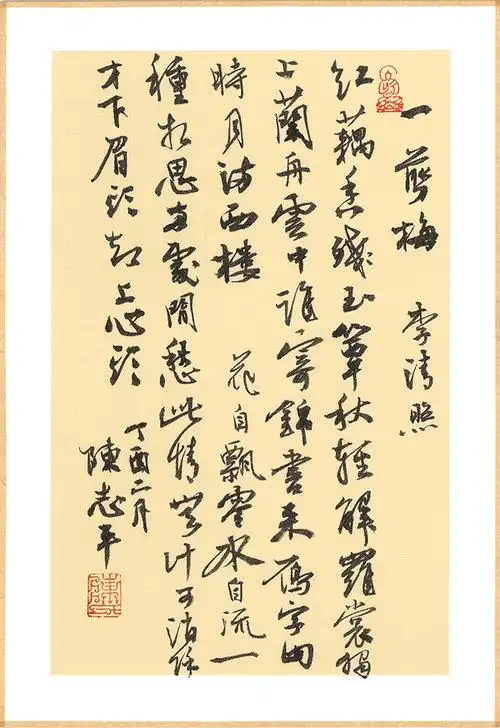 一剪梅 李清照
紅藕香殘玉簟秋輕解羅裳獨
上蘭舟雲中誰寄錦書來雁字回
時月滿西樓 花自飄零水自流一
種相思兩處閒愁此情無計可消除
才下眉頭却上心頭
丁酉二月
陳志平